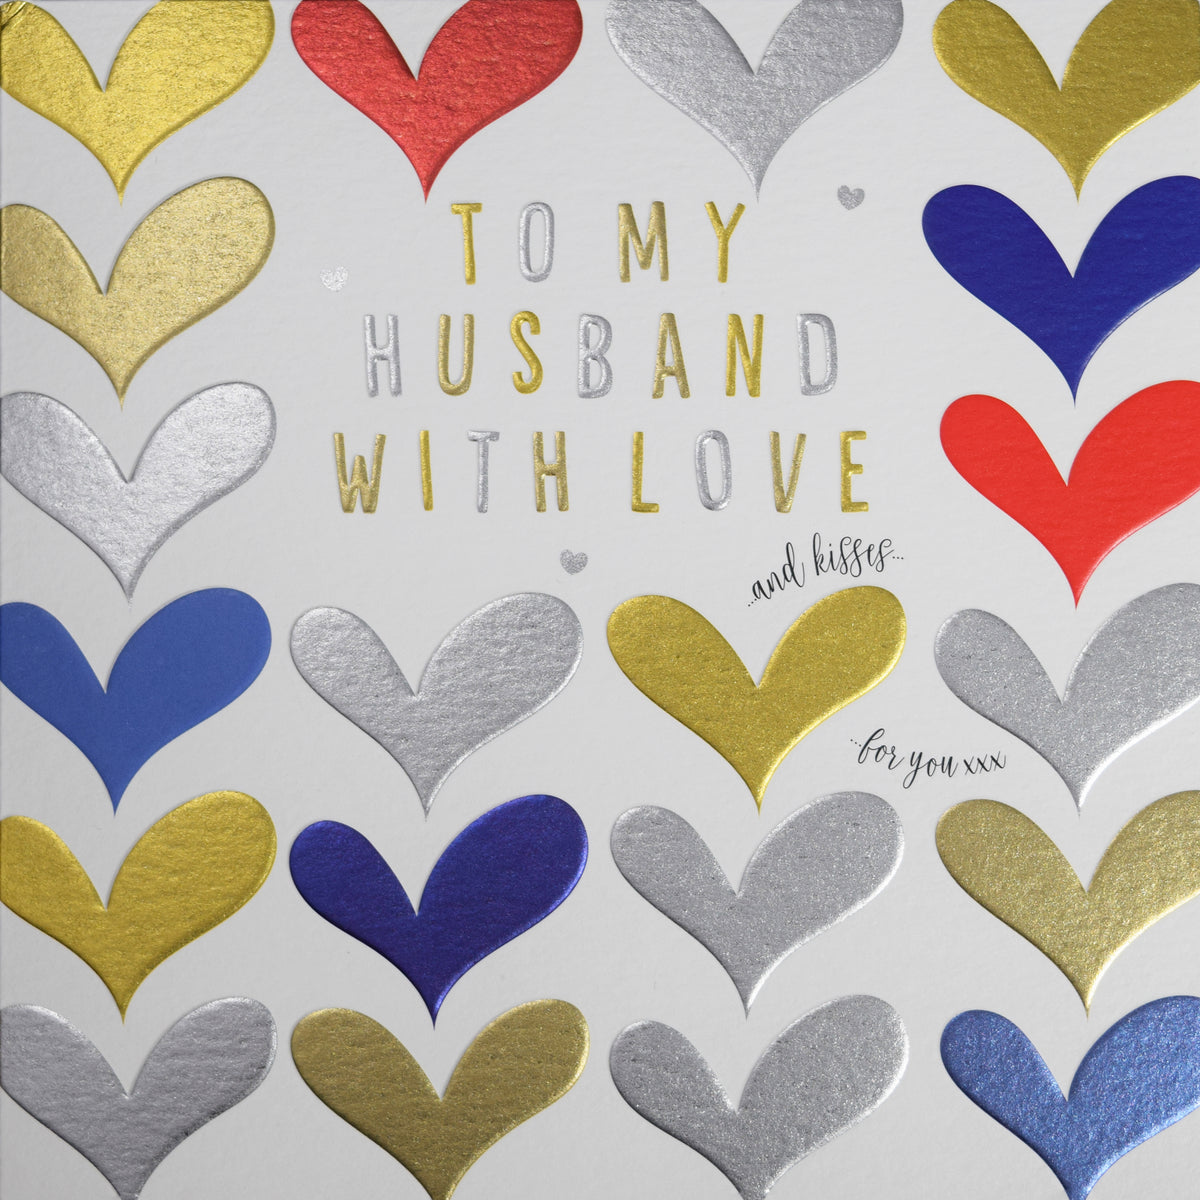 TO MY
HUSBAND
WITH LOVE
...and kisses...
...for you xxx